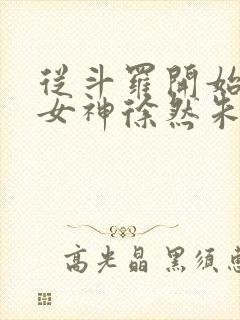 從斗羅開始
女神徐然朱
高光晶 黑須